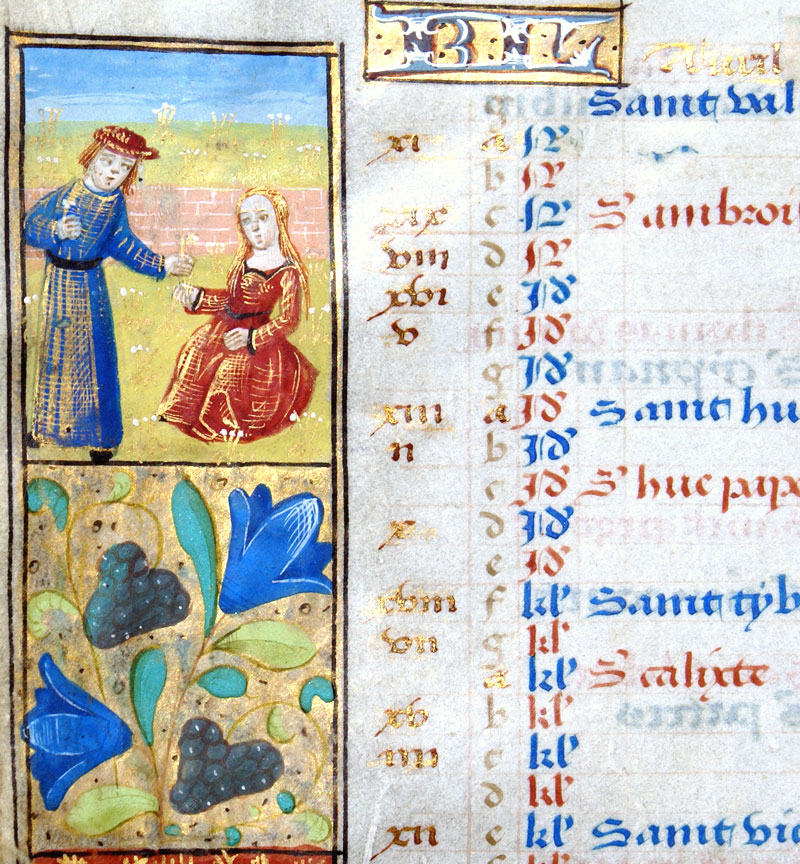 Auril
g Saint val
xi a N
b N
xix c N S ambroi
viii d N
xvi e Id
v f Id
g Id
xiii a Id Saint hu
ii b Id
c Id S hue pape
x d Id
e Id
xviii f kl Saint tyb
vii g kl
a kl S calixte
xv b kl
iiii c kl
d kl
xii e kl Saint vic